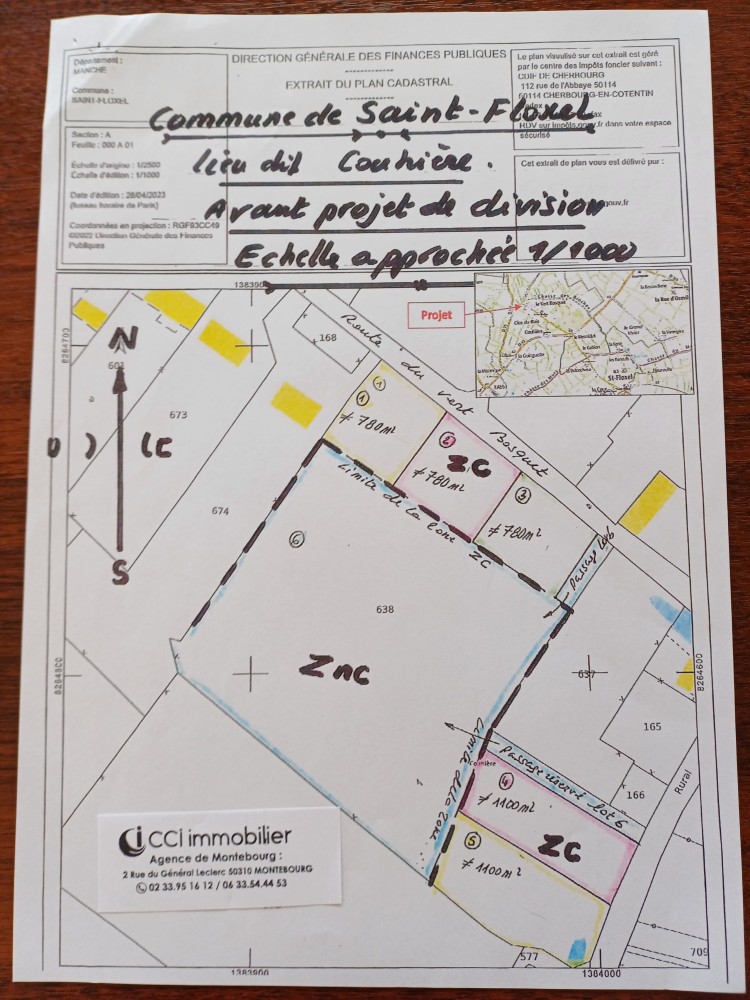 Département :
MANCHE
Commune :
SAINT-FLOXEL
Section : A
Feuille : 000 A 01
Échelle d'origine : 1/2500
Échelle d'édition : 1/1000
Date d'édition : 28/04/2023
(fuseau horaire de Paris)
Coordonnées en projection : RGF93CC49
©2022 Direction Générale des Finances
Publiques
DIRECTION GÉNÉRALE DES FINANCES PUBLIQUES
EXTRAIT DU PLAN CADASTRAL
Le plan visualisé sur cet extrait est géré
par le centre des impôts foncier suivant :
CDIF DE CHERBOURG
112 rue de l'Abbaye 50114
50114 CHERBOURG-EN-COTENTIN
RDV sur impôts.gouv.fr dans votre espace
sécurisé
Cet extrait de plan vous est délivré par :
gouv.fr
Commune de Saint-Floxel
lieu dit Couhière.
Avant projet de division
Echelle approchée 1/1000
1383900
8264700
Projet
St-Floxel
168
Route du vert Bosquet
N
673
674
S
1
1
≠ 780m²
2
ZC
≠ 780m²
3
≠ 780m²
Limite de la zone ZC
Passage lot 6
6
638
ZnC
637
8264600
8264600
165
166
Rural
Passage réservé lot 6
Limite de la zone
4
≠ 1100m²
ZC
5
≠ 1100m²
577
709
CCI immobilier
Agence de Montebourg :
2 Rue du Général Leclerc 50310 MONTEBOURG
02 33.95 16 12 / 06 33.54.44 53
1383900
1384000